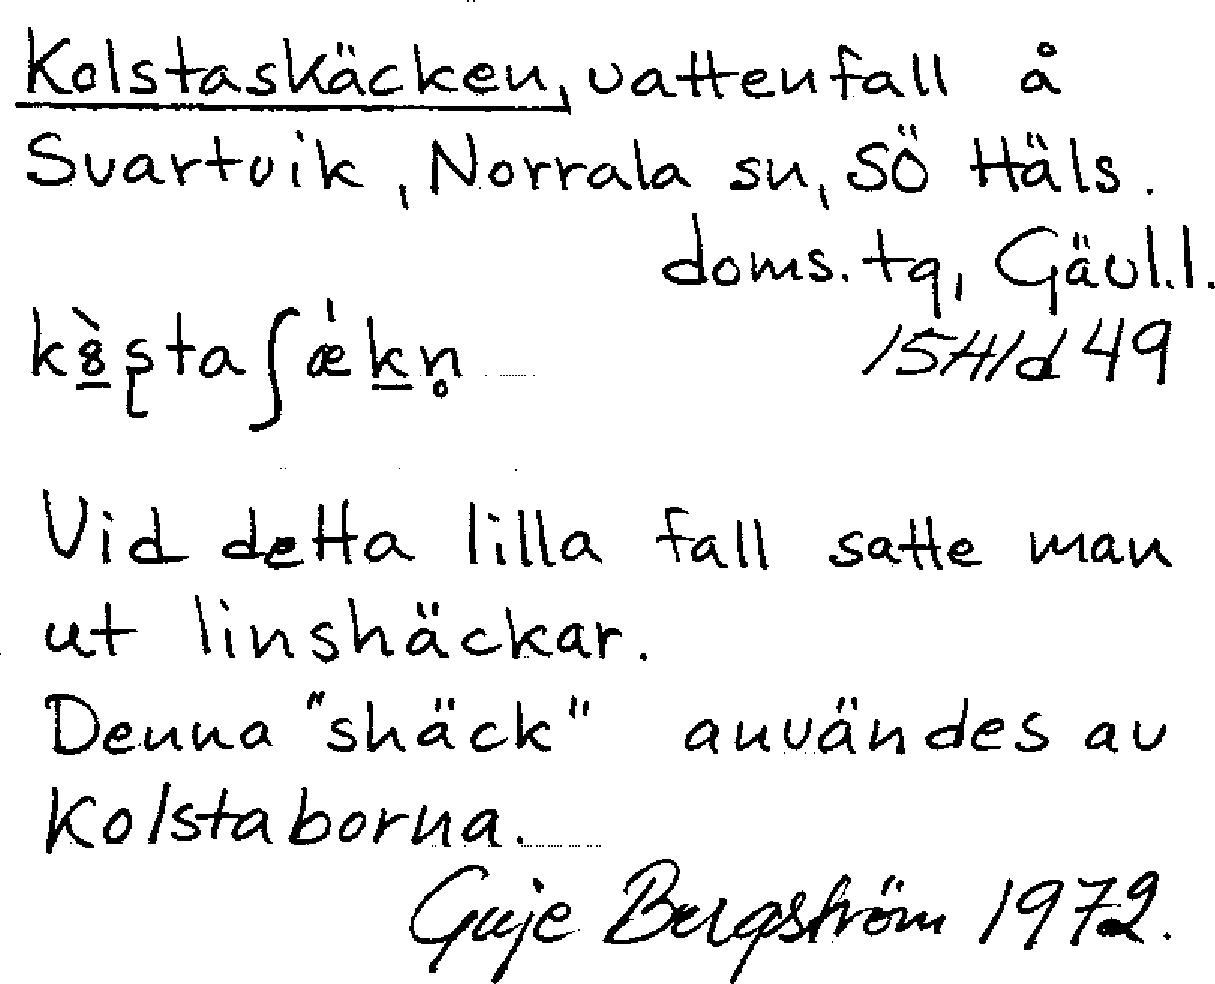 Kolstaskäcken, vattenfall å
Svartvik, Norrala sn, SÖ Häls.
doms. tg, Gävl.l.
kȣ̀ʂtaʃǽkn̥ 15H1d49
Vid detta lilla fall satte man
ut linshäckar.
Denna "shäck" användes av
Kolstaborna.
Guje Bergström 1972.